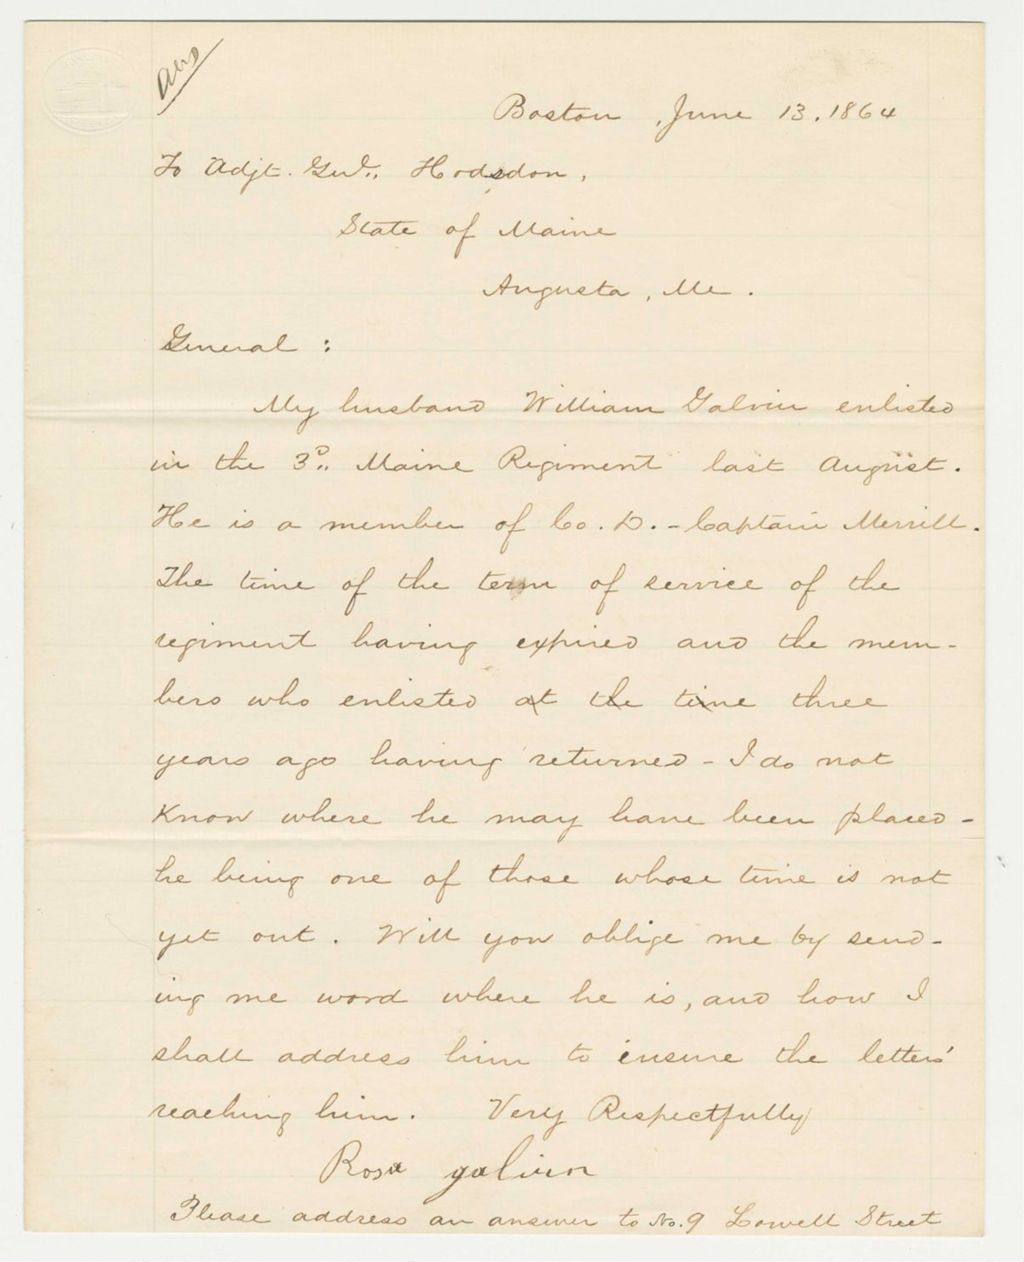 Ans
Boston, June 13, 1864
To Adjt. Genl., Hodsdon,
State of Maine
Augusta, Me.
General:
My husband William Galvin enlisted
in the 3d., Maine Regiment last August.
He is a member of Co. D. - Captain Merrill.
The time of the term of service of the
regiment having expired and the mem-
bers who enlisted at the time three
years ago having returned - I do not
know where he may have been placed -
he being one of those whose time is not
yet out. Will you oblige me by send-
ing me word where he is, and how I
shall address him to insure the letters'
reaching him. Very Respectfully
Rosa galvin
Please address an answer to No. 9 Lowell Street